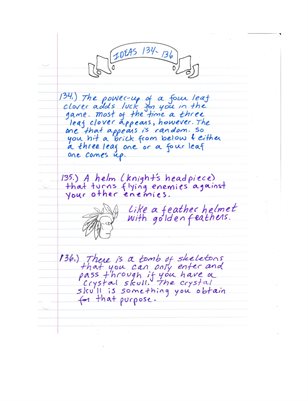 IDEAS 134-136
134.) The power-up of a four leaf
clover adds luck for you in the
game. Most of the time a three
leaf clover appears, however. The
one that appears is random. So
you hit a brick from below & either
a three leaf one or a four leaf
one comes up.
135.) A helm (knight's headpiece)
that turns flying enemies against
your other enemies.
Like a feather helmet
with golden feathers.
136.) There is a tomb of skeletons
that you can only enter and
pass through if you have a
"Crystal skull." The crystal
skull is something you obtain
for that purpose.